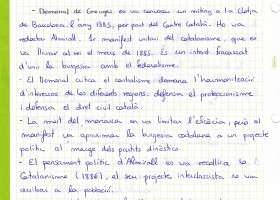 - Memorial de Greuges es va convocar un míting a la Llotja
de Barcelona l'any 1885, per part del Centre Català. Ho va
redactar Almirall. 1r manifest unitari del catalanisme, que es
va lliurar al rei el març de 1885. Es un intent fracassat
d'unir la burgesia amb el federalisme.
- El Memorial critica el centralisme, demana l'harmonització
d'interessos de les diferents regions, defensa el proteccionisme
i defensa el dret civil català.
- La mort del monarca en va limitar l'eficàcia, però el
manifest va aproximar la burgesia catalana a un projecte
polític al marge dels partits dinàstics.
- El pensament polític d'Almirall es va recollir a lo
Catalanisme (1886), el seu projecte interclassista no va
arribar a la població.